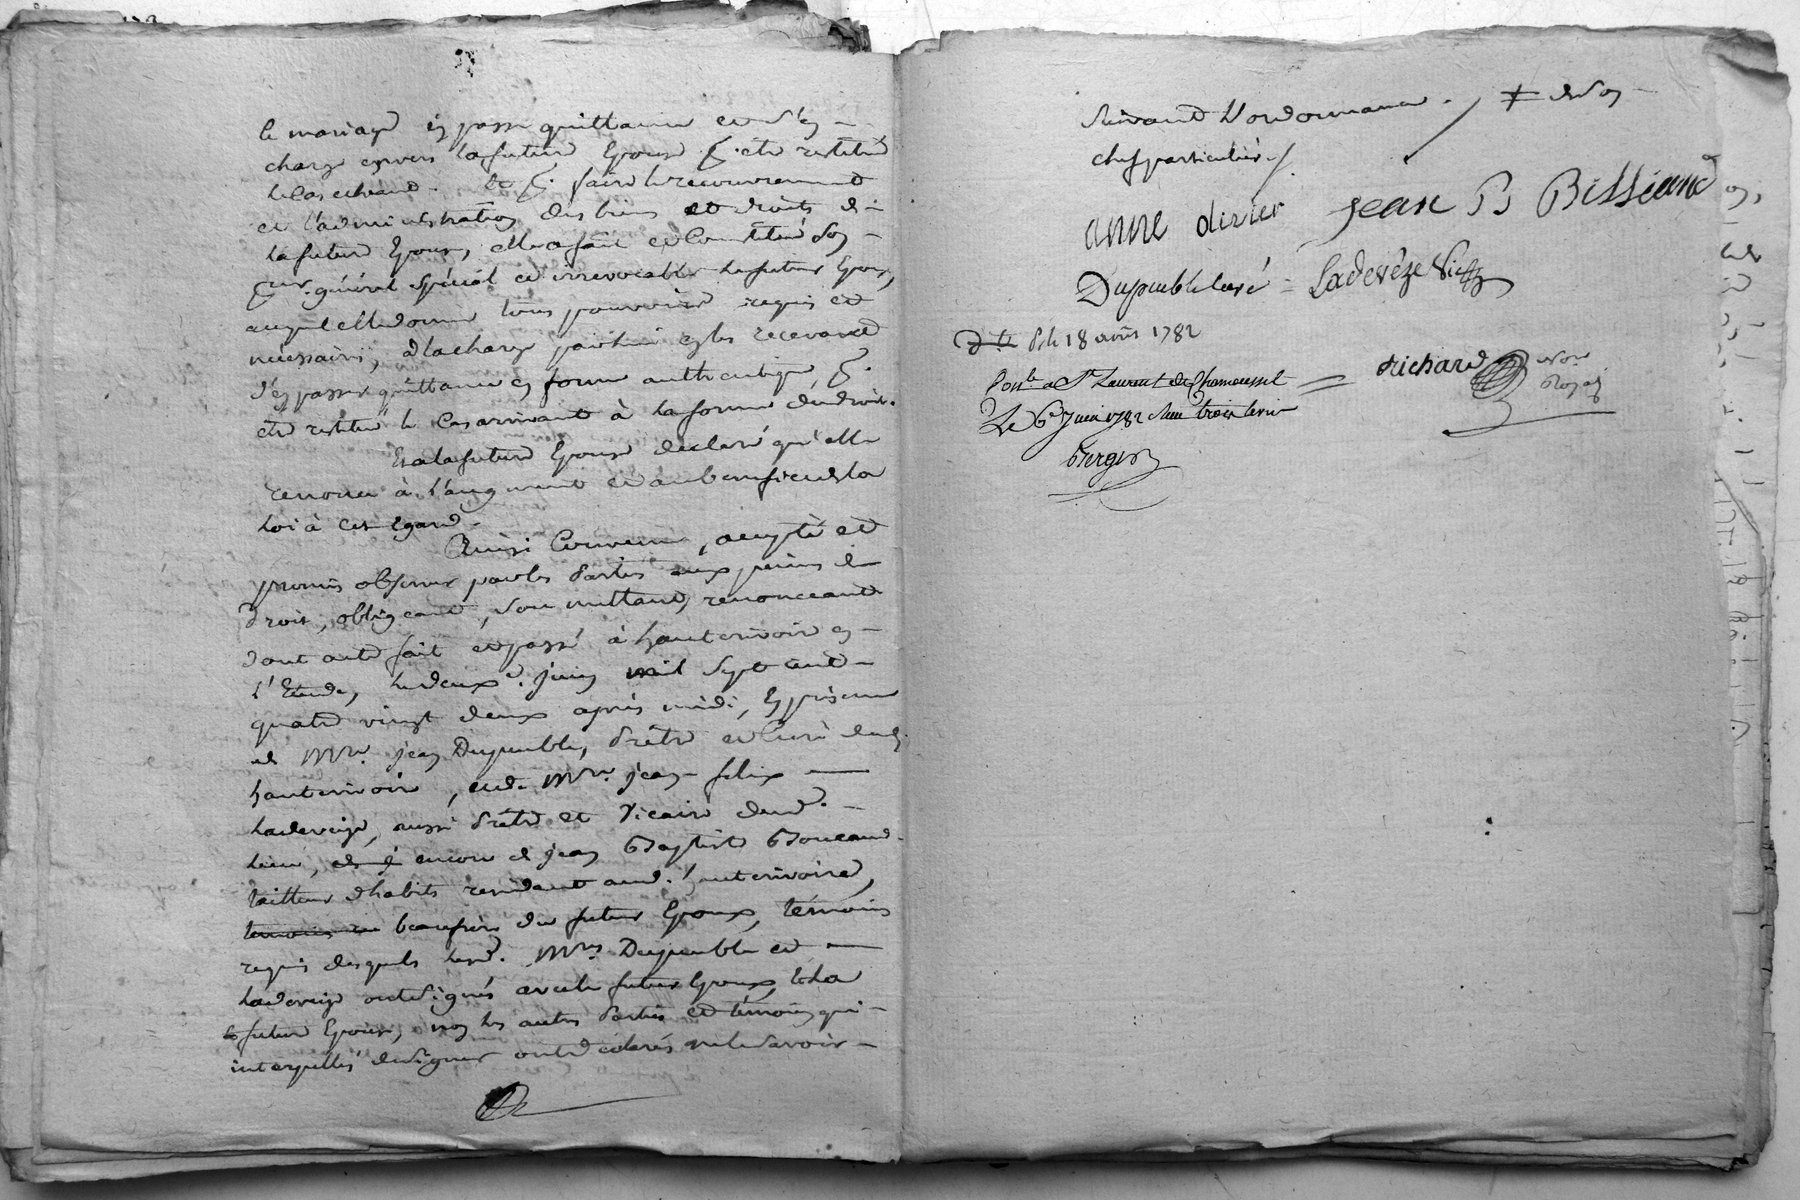 le mariage en passer quittance et s'en
charge envers la future Epouse p. etre restitué
le cas echeant. Et p. faire le recouvrement
et l'administration des biens et droits de
la future Epouse, elle a fait et Constitué son
pur. général spécial et irrevocable le futur Epoux,
auquel elle donne tous pouvoirs requis et
nécessaires, à la charge par lui en les recevant
d'en passer quittance en forme authentique p.
etre restitué le Cas arrivant à la forme du droit.
Et a la future Epouse declaré qu'elle
renonce à l'augment et au benefice de la
Loi à cet Egard.
Ainsi Convenu, accepté et
promis observer par les Parties aux peines de
droit, obligeant, soumettant, renonceant
dont acte fait et passé à hauterivoire en
l'Etude, le deux. Juin mil Sept cent
quatre vingt deux après midi, En présence
de Mre. jean Dupuble, Prêtre et Curé dud.
hauterivoire, et de Mre. jean felix
Ladeveze, aussi Prêtre et Vicaire dud.
Lieu, et encore de jean Baptiste
tailleur d'habits residant aud. hauterivoire,
temoins beaufrère du futur Epoux, témoins
requis desquels lesd. Mres Dupuble et
Ladeveze ont signés avec le futur Epoux, et la
future Epouse, non les autres Parties et témoin qui
interpellés de signer ont declarés ne le savoir
Suivant L'ordonnance. / ≠ de son
chef particulier /
anne divier jean B Bissieux
Dupuble Curé Ladevèze Vic
18 1782
à St Laurent de Chamousset
Le 6e Juin 1782 trois
Richard Nore
Royal